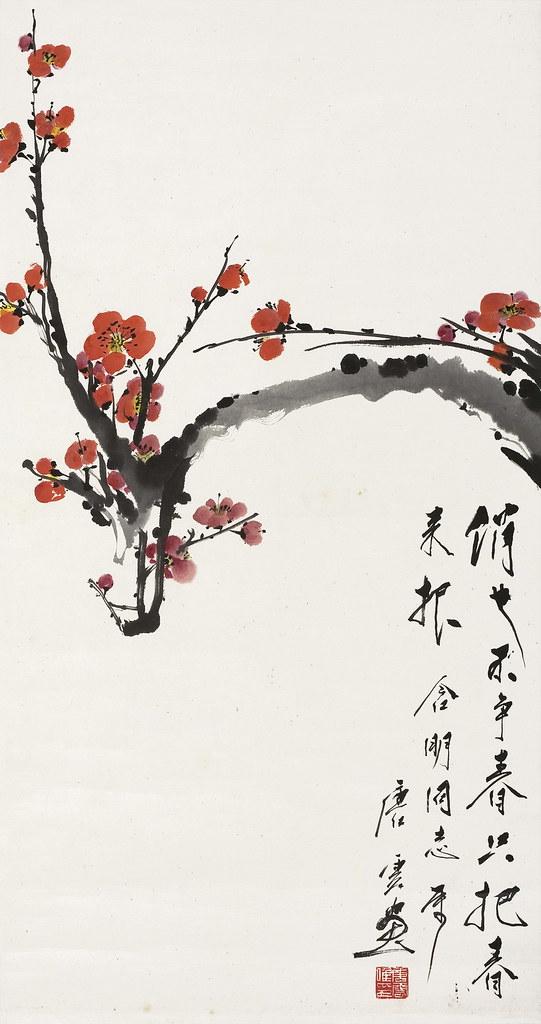 俏也不争春只把春
来报 含明同志属
唐雲畫